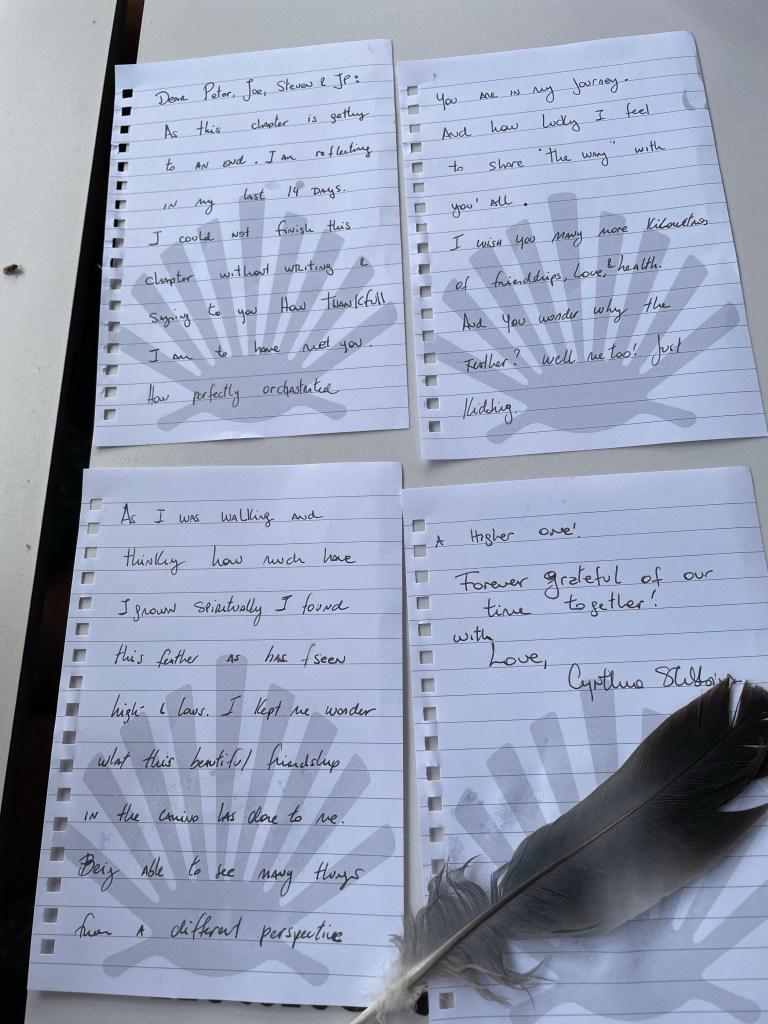 Dear Peter, Joe, Steven & JP:
As this chapter is getting
to an end. I am reflecting
in my last 14 DAYS.
I could not finish this
chapter without writing &
saying to you How THANKfull
I am to have met you.
How perfectly orchestrated
You are in my journey.
And how lucky I feel
to share "the way" with
you' all.
I wish you many more Kilometros
of friendships, Love, & health.
And you wonder why the
Feather? well me too! Just
Kidding.
As I was walking and
thinking how much have
I grown spiritually I found
this feather as has seen
high & lows. I kept me wonder
what this beautiful friendship
in the camino has done to me.
Being able to see many things
from a different perspective
A Higher one!
Forever grateful of our
time together!
with
Love,
Cynthia